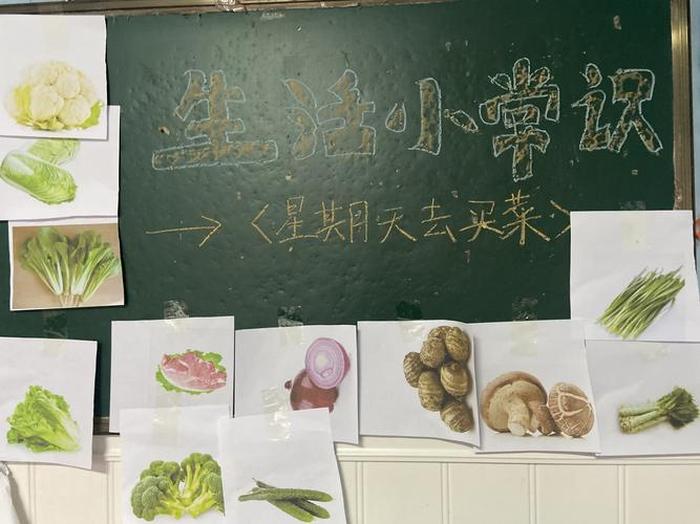 生活小常识
→《星期天去买菜》